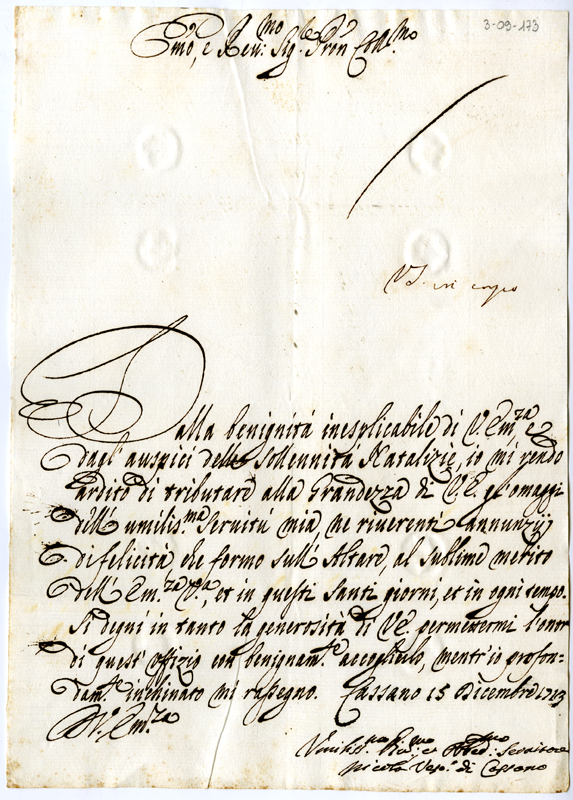 3-09-173
Emo, e Rev:mo Sig.re Prin Coll.mo
Dalla benignitá inesplicabile di V. Em.za e
dagl' auspici delle sollennitá Natalizie, io mi rendo
ardito di tributare alla Grandezza di V.E. gl' omaggi
dell' umilis.ma Servitú mia, ne riverenti annunzij
di felicitá, che formo sull' Altare, al sublime merito
dell' Em.za V.a, et in questi santi giorni, et in ogni tempo.
Si degni in tanto la generositá di V.E. permettermi l'onor
di quest' offizio con benignam.te accoglierlo, mentr' io profon-
dam.te inchinato mi rassegno. Cassano 15 Dicembre 1713
D V. Em.za
Umilis.mo Dev.mo et Obed.mo Servitore
Nicolò Vesc.o di Cassano